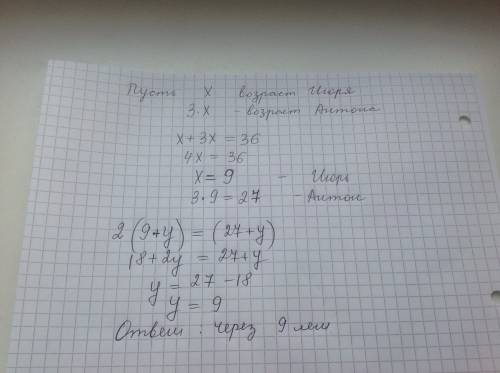 Пусть х возраст Игоря
3·х - возраст Антона
х+3х = 36
4х = 36
х = 9 - Игорь
3·9 = 27 - Антон
2(9+y) = (27+y)
18+2y = 27+y
y = 27-18
y = 9
Ответ: через 9 лет